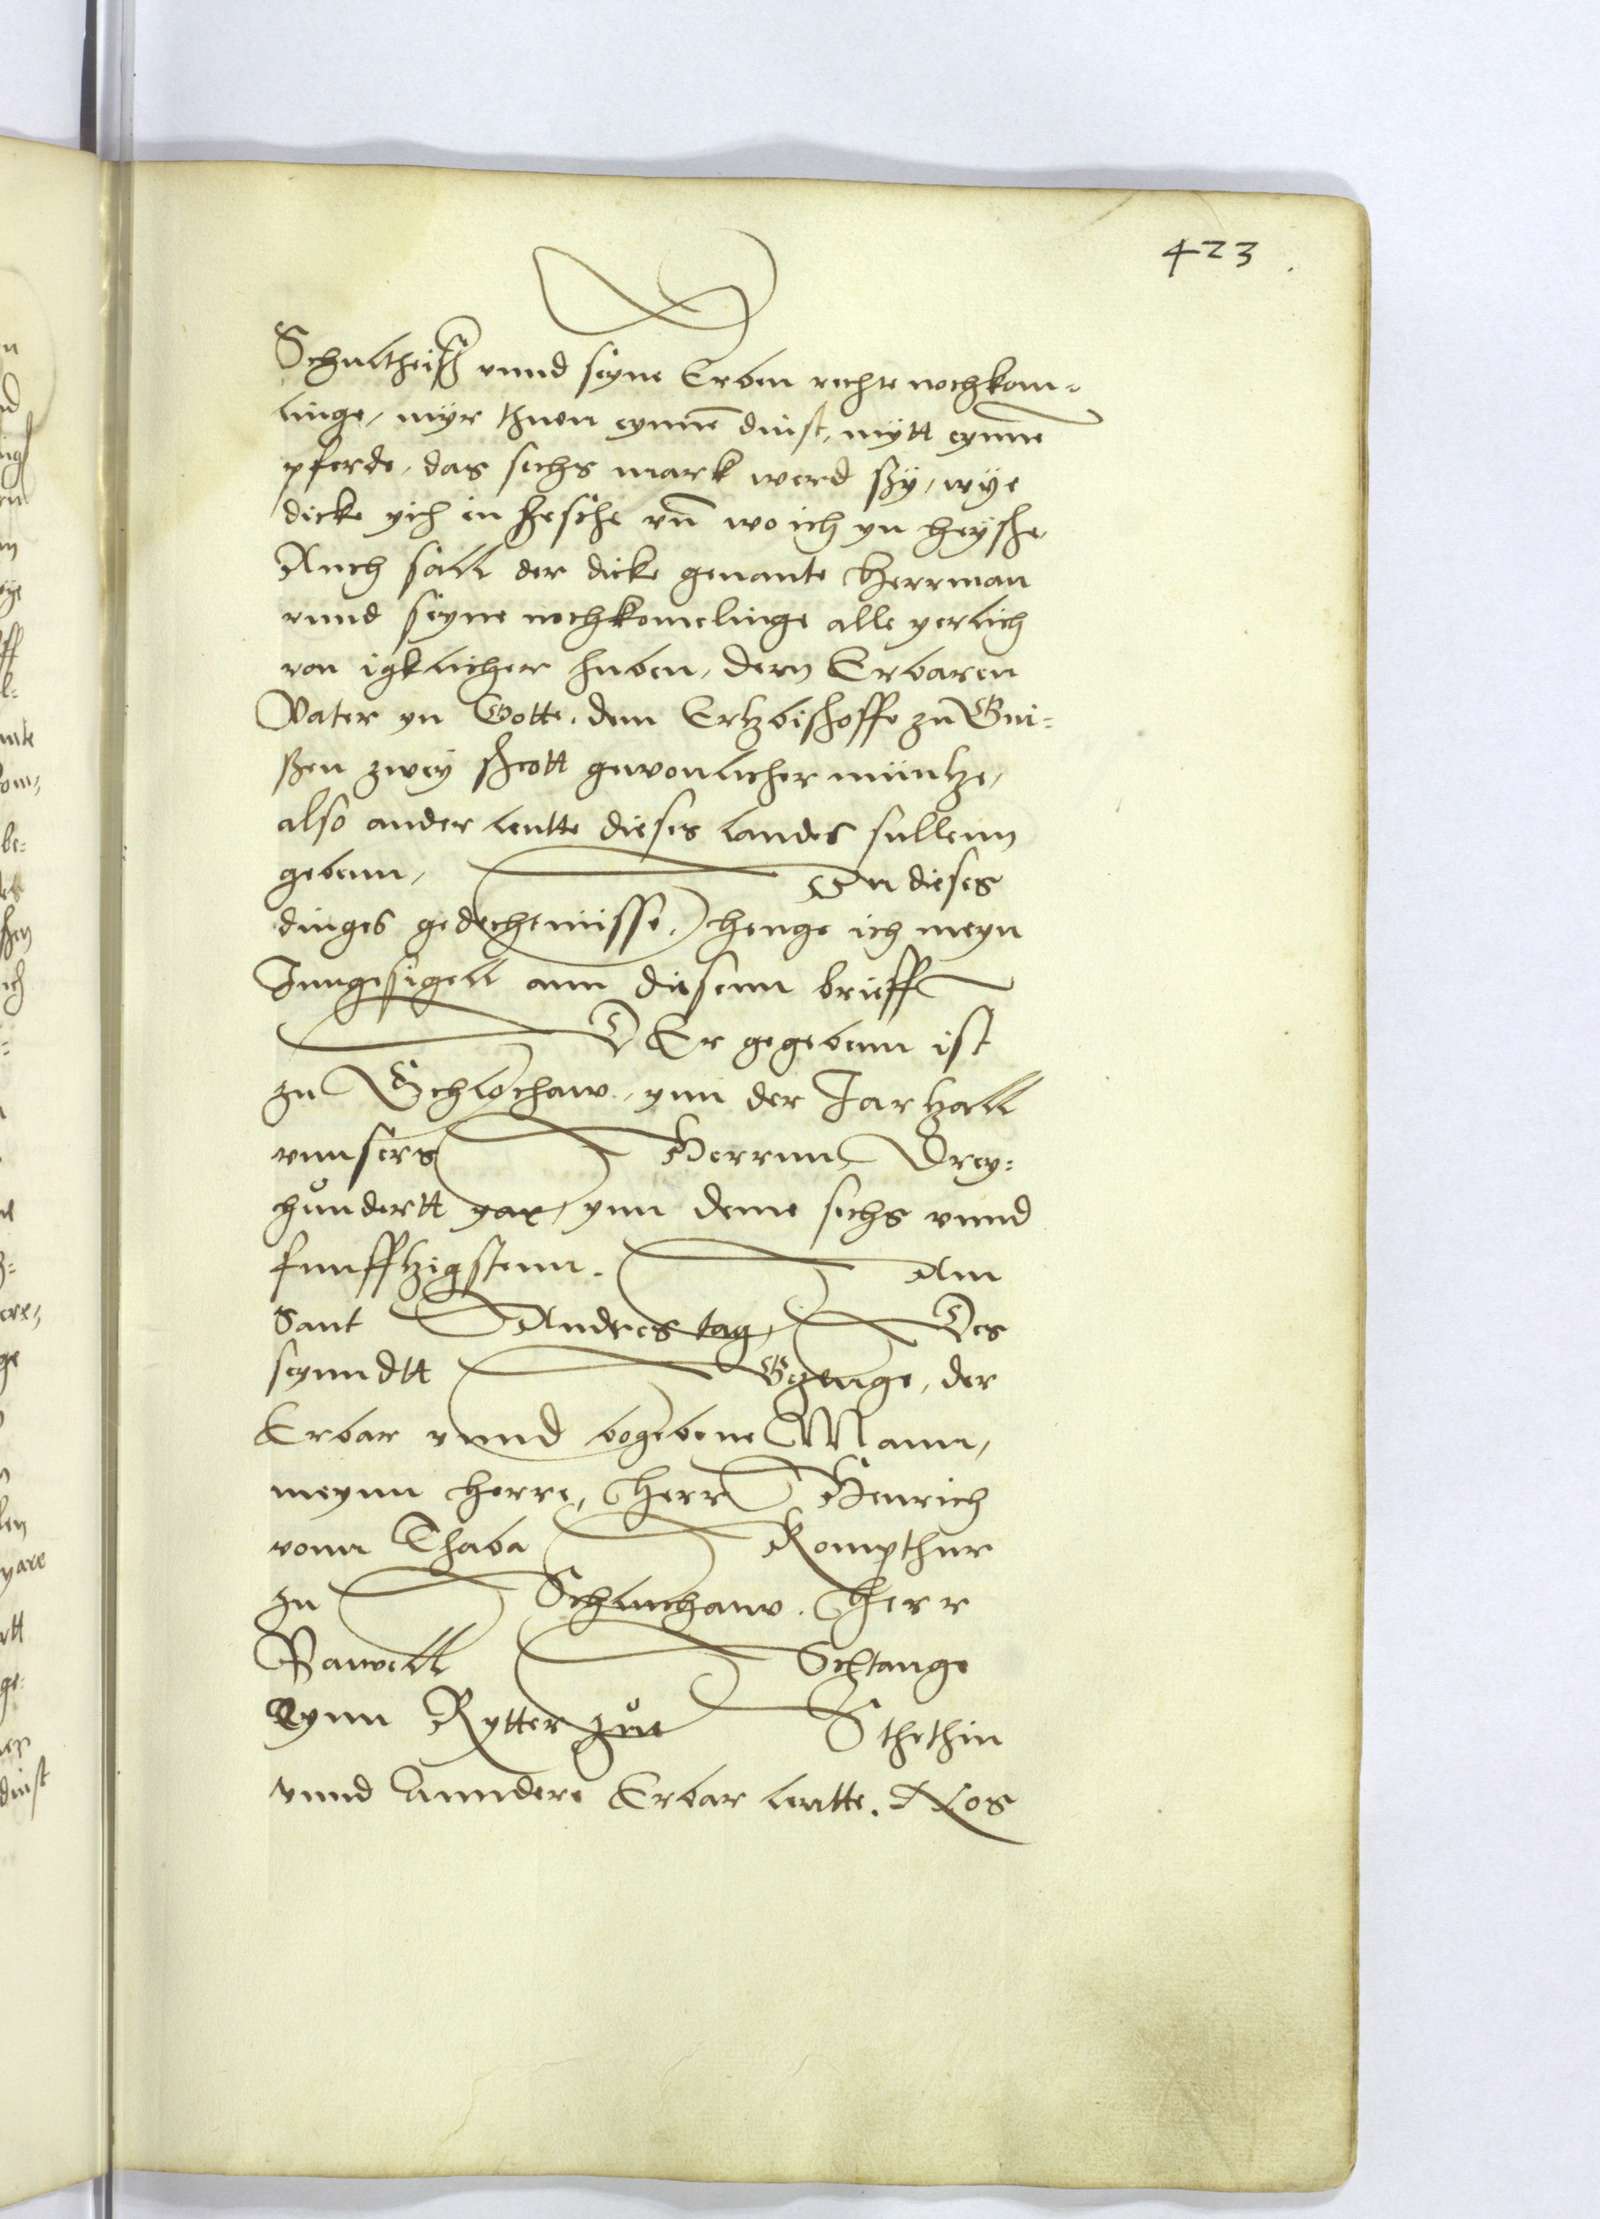 423
Schultheiß vnnd seyne Erben rechte nochkom=
linge, myr thuen eynnē dinst, mytt eynne
pferde, das sechs mark werd sy, wye
dicke yich in hesche vn̄ wo ich yn heyshe,
Auch sall der dicke genante Herrman
vnnd seyne nochkomelinge alle yerlich
von igklicher huben, dem Erbaren
Vater yn Gotte, dem Ertzbishoffe zu Gni=
ßen zwey shott gewonlicher müntze,
also ander leutte dieses landes sullenn
gebenn, Zu dieses
dinges gedechtenisse, henge ich meyn
Inngesigell ann diesenn brieff
DEr gegebenn ist
zu Schlochaw, ynn der Jartzall
vnnsers Herrnn Drey=
hůndertt yar, ynn deme sechs vnnd
funfftzigstenn. Am
Sant Andres tag, Des
seynndtt Gzeuge, der
Erbar vnnd begebene Mann,
meynn herre, Herr Henrich
vonn Thaba Kompthur
zu Schluchaw. Herr
Pawell Schtange
Eynn Rytter zůe Sthethin
vnnd Anndere Erbar leutte. Nos